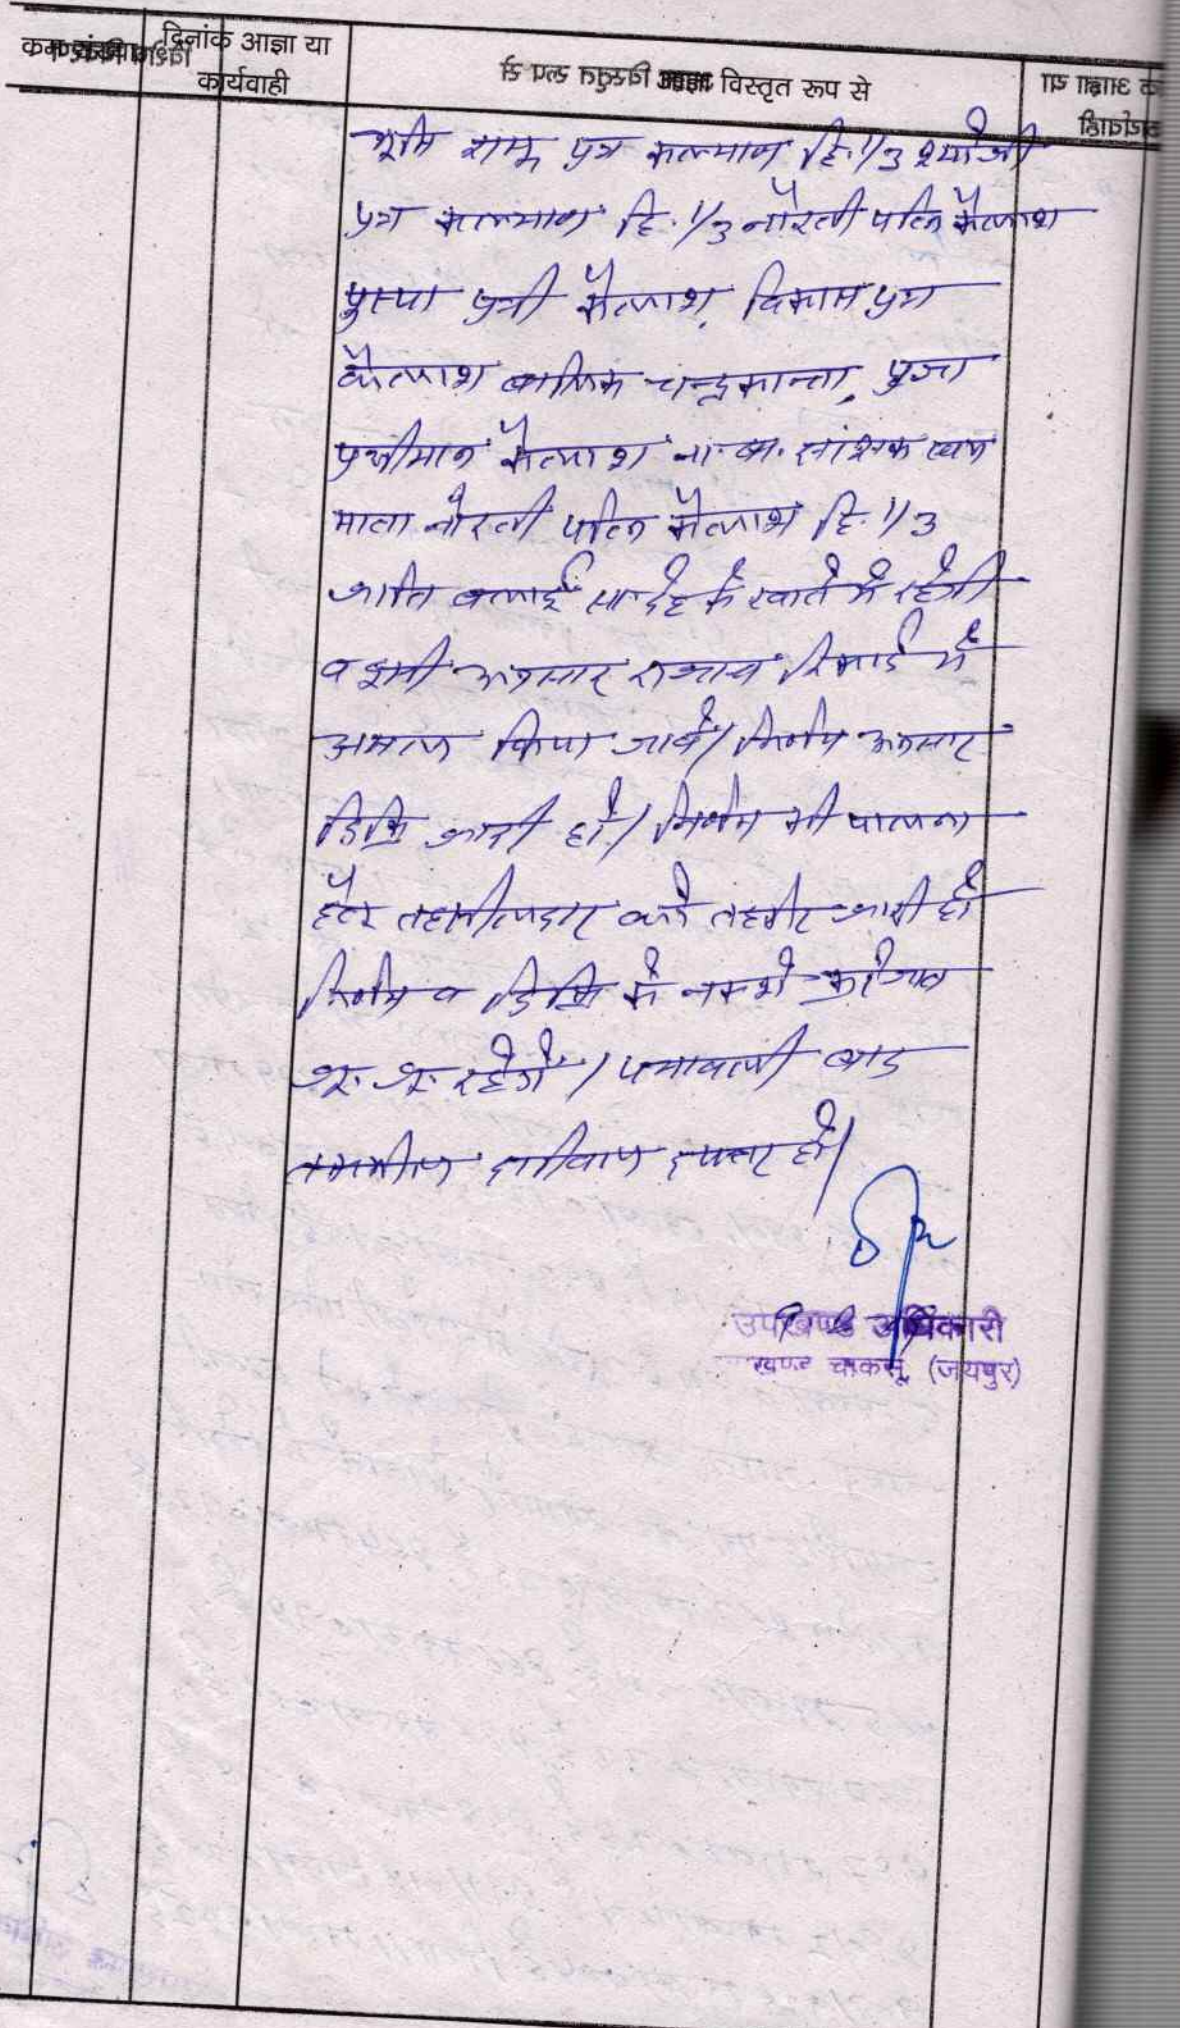 दिनांक आज्ञा या
कार्यवाही
आज्ञा विस्तृत रूप से
भूमि रामू पुत्र कल्याण हि. 1/3 श्योजी
पुत्र कल्याण हि. 1/3 नौरती पत्नि कैलाश
पुष्पा पुत्री कैलाश, विकास पुत्र
कैलाश बालिक चन्द्रकान्ता, पूजा
पुत्रीयान कैलाश ना. बा. संरक्षक
माता नौरती पत्नि कैलाश हि. 1/3
जाति बलाई सा. देह के खाते में रहेगी
व इसी अनुसार राजस्व रिकार्ड में
अमल किया जावे। निर्णय अनुसार
डिक्री जारी हो। निर्णय की पालना
हेतु तहसीलदार को तहरीर जारी हो
निर्णय व डिक्री के नक्शे कुरेजात
रहेगें। पत्रावली बाद
तकमील दाखिल दफ्तर हो।
उपखण्ड अधिकारी
खण्ड चाकसू (जयपुर)